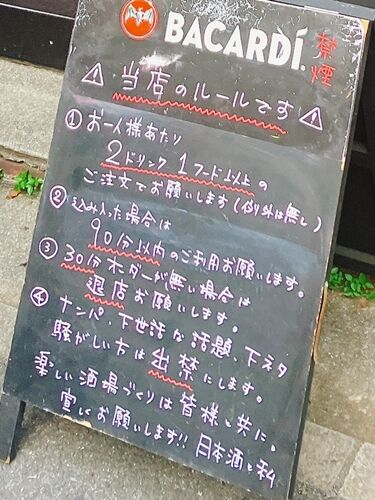 BACARDÍ
禁煙
⚠当店のルールです⚠
①お一人様あたり
2ドリンク1フード以上の
ご注文でお願いします(例外は無し)
②込み入った場合は
90分以内のご利用お願いします。
③30分オーダーが無い場合は
退店お願いします。
④ナンパ・下世話な話題、下ネタ
騒がしい方は出禁にします。
楽しい酒場づくりは皆様と共に。
宜しくお願いします!!日本酒と私